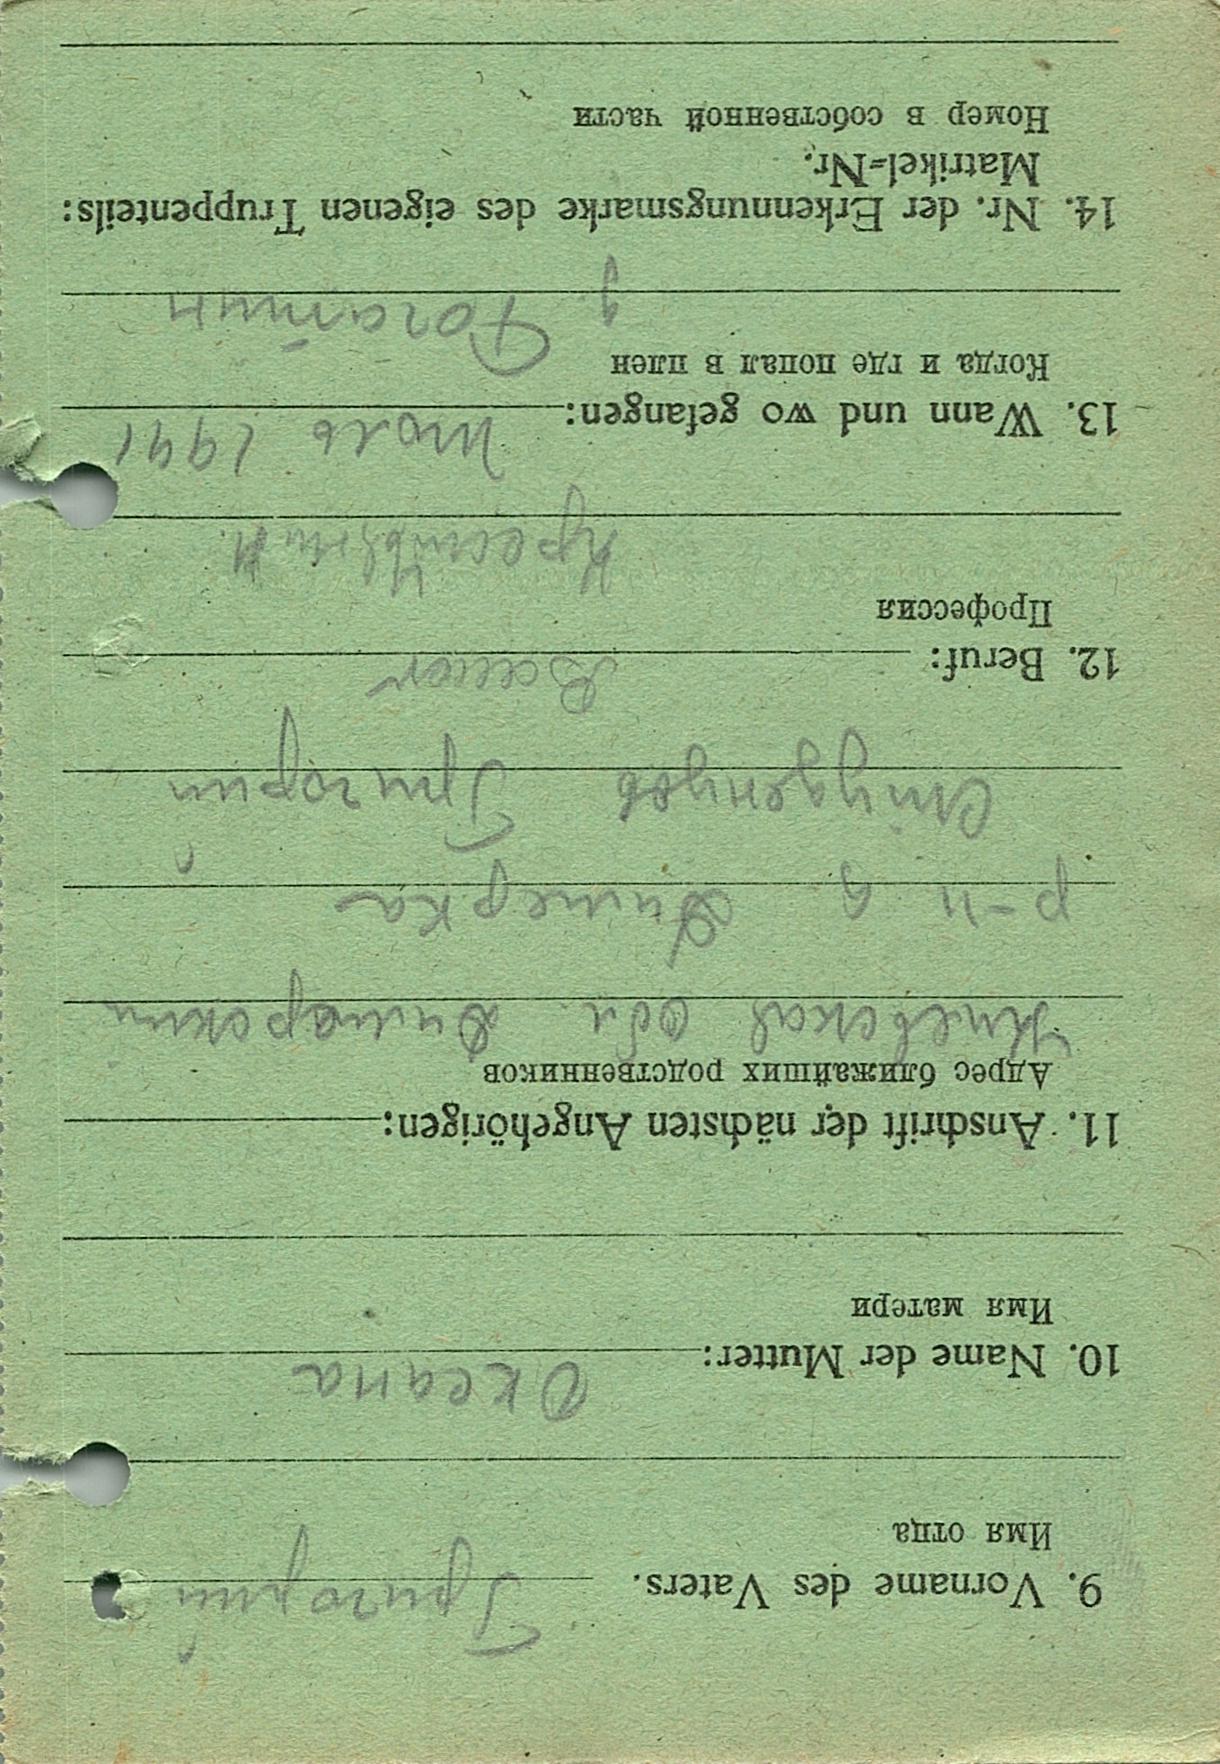 9. Vorname des Vaters.
Имя отца
Григорий
10. Name der Mutter:
Имя матери
Оксана
11. Anschrift der nächsten Angehörigen:
Адрес ближайших родственников
Киевская обл. Димерский
р-н д. Димерка
Григорий
12. Beruf:
Профессия
13. Wann und wo gefangen:
Июль 1941
Когда и где попал в плен
д
14. Nr. der Erkennungsmarke des eigenen Truppenteils:
Matrikel=Nr.
Номер в собственной части